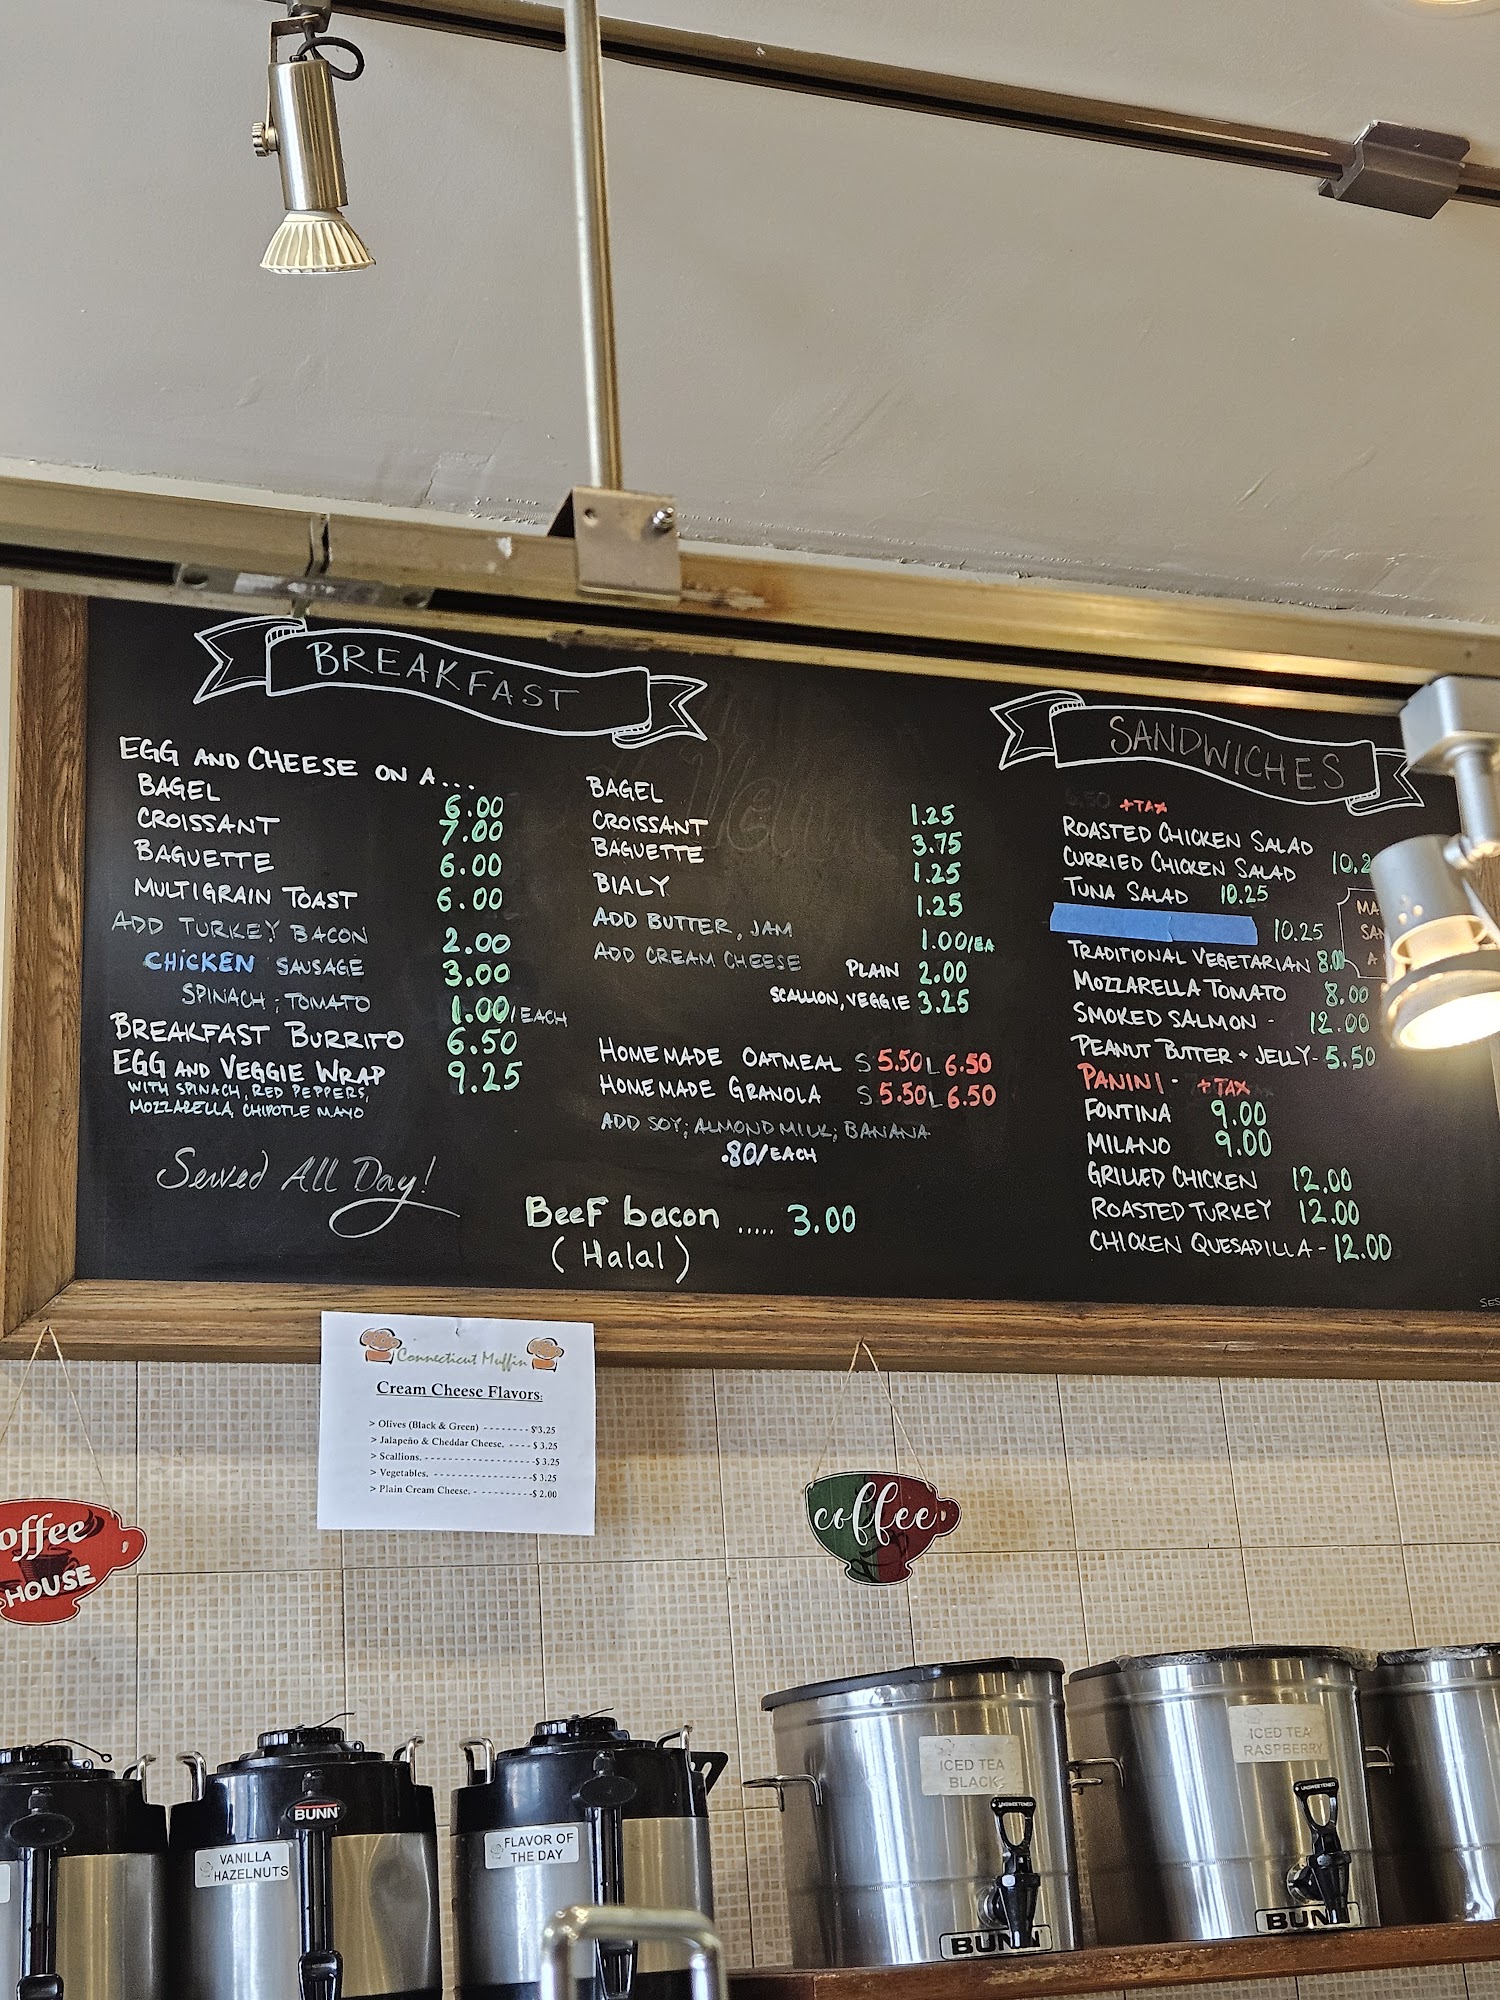 BREAKFAST
EGG AND CHEESE ON A...
BAGEL 6.00
CROISSANT 7.00
BAGUETTE 6.00
MULTIGRAIN TOAST 6.00
ADD TURKEY BACON 2.00
CHICKEN SAUSAGE 3.00
SPINACH; TOMATO 1.00/EACH
BREAKFAST BURRITO 6.50
EGG AND VEGGIE WRAP 9.25
WITH SPINACH, RED PEPPERS,
MOZZARELLA, CHIPOTLE MAYO
Served All Day!
BAGEL 1.25
CROISSANT 3.75
BAGUETTE 1.25
BIALY 1.25
ADD BUTTER, JAM 1.00/EA
ADD CREAM CHEESE PLAIN 2.00
SCALLION, VEGGIE 3.25
HOMEMADE OATMEAL S 5.50 L 6.50
HOMEMADE GRANOLA S 5.50 L 6.50
ADD SOY; ALMOND MILK; BANANA
.80/EACH
BeeF bacon ..... 3.00
(Halal)
SANDWICHES
6.50 +TAX
ROASTED CHICKEN SALAD
CURRIED CHICKEN SALAD 10.2
TUNA SALAD 10.25
10.25
TRADITIONAL VEGETARIAN 8.00
MOZZARELLA TOMATO 8.00
SMOKED SALMON - 12.00
PEANUT BUTTER + JELLY - 5.50
PANINI - +TAX
FONTINA 9.00
MILANO 9.00
GRILLED CHICKEN 12.00
ROASTED TURKEY 12.00
CHICKEN QUESADILLA - 12.00
MA
SAN
A
SES
Connecticut Muffin
Cream Cheese Flavors:
> Olives (Black & Green) -------- $3.25
> Jalapeño & Cheddar Cheese. ---- $3.25
> Scallions. -------------------- $3.25
> Vegetables. ------------------ $3.25
> Plain Cream Cheese. - --------- $2.00
offee
HOUSE
coffee
VANILLA
HAZELNUTS
BUNN
FLAVOR OF
THE DAY
ICED TEA
BLACK
UNSWEETENED
BUNN
ICED TEA
RASPBERRY
UNSWEETENED
BUNN